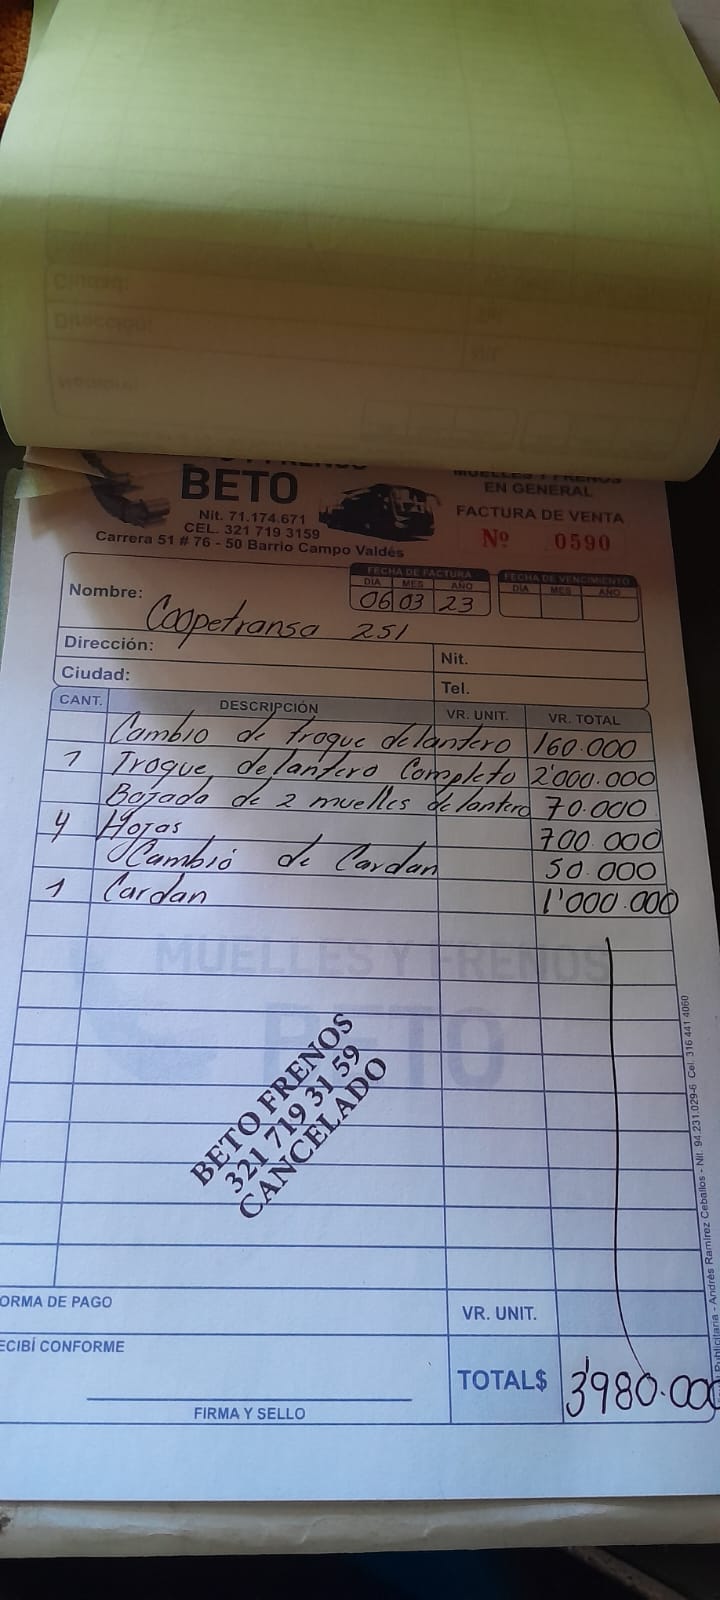 BETO
Nit. 71.174.671
CEL. 321 719 3159
Carrera 51 # 76 - 50 Barrio Campo Valdés
MUELLES Y FRENOS
EN GENERAL
FACTURA DE VENTA
Nº 0590
FECHA DE FACTURA
DIA MES AÑO
06 03 23
FECHA DE VENCIMIENTO
DIA MES AÑO
Nombre: Coopetransa 251
Dirección:
Nit.
Ciudad:
Tel.
CANT. DESCRIPCIÓN VR. UNIT. VR. TOTAL
Cambio de troque delantero 160.000
1 Troque delantero Completo 2'000.000
Bajada de 2 muelles delantero 70.000
4 Hojas 700.000
Cambio de Cardan 50.000
1 Cardan 1'000.000
MUELLES Y FRENOS
BETO
BETO FRENOS
321 719 31 59
CANCELADO
ORMA DE PAGO
VR. UNIT.
ECIBÍ CONFORME
TOTAL$ 3'980.000
FIRMA Y SELLO
Publicitaria - Andrés Ramírez Ceballos - Nit. 94.231.029-6 Cel. 316 441 4060